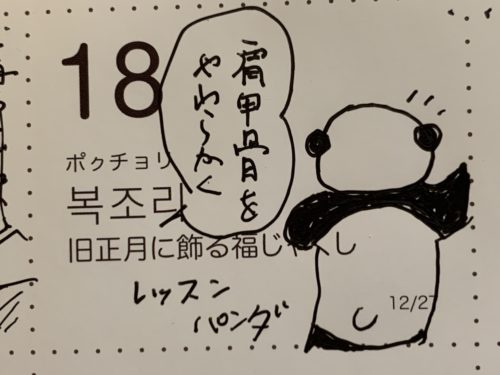 18
ポㇰチョリ
복조리
旧正月に飾る福じゃくし
肩甲骨を
やわらかく
レッスン
パンダ
12/27